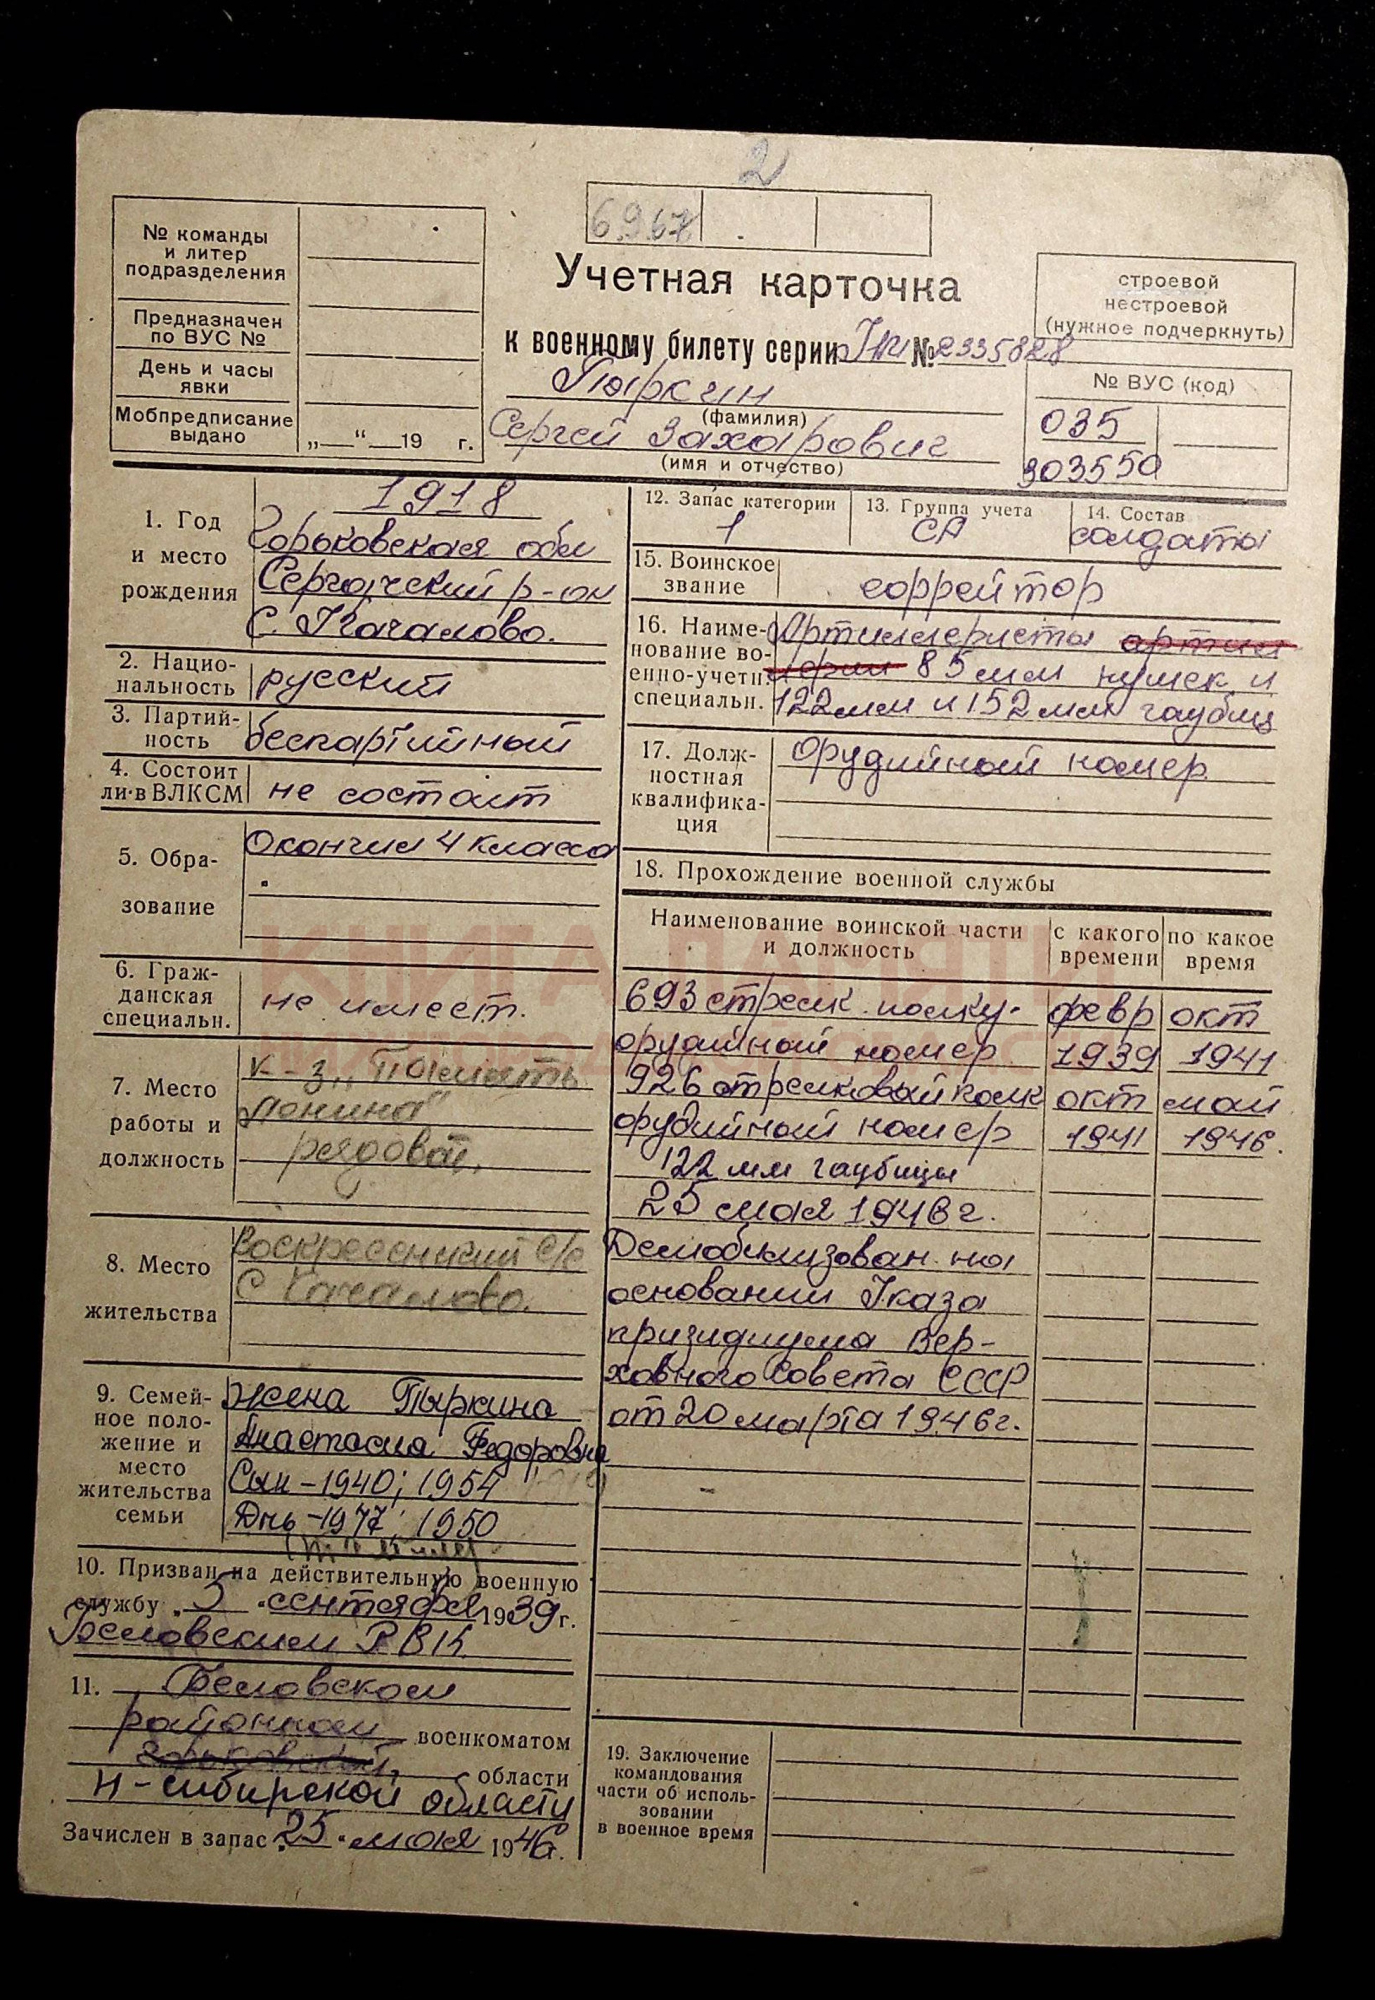 2
6967
№ команды
и литер
подразделения
Предназначен
по ВУС №
День и часы
явки
Мобпредписание
выдано
„ “ 19 г.
Учетная карточка
к военному билету серии № 2335828
Пыркин
(фамилия)
Сергей Захарович
(имя и отчество)
строевой
нестроевой
(нужное подчеркнуть)
№ ВУС (код)
035
903550
1. Год
и место
рождения
1918
Горьковская обл
Сергачский р-он
с. Качалово.
2. Нацио-
нальность
русский
3. Партий-
ность
беспартийный
4. Состоит
ли в ВЛКСМ
не состоит
5. Обра-
зование
Окончил 4 класса
6. Граж-
данская
специальн.
не имеет.
7. Место
работы и
должность
к-з „Память
Ленина"
рядовой,
8. Место
жительства
Воскресенский с/с
с Качалово.
9. Семей-
ное поло-
жение и
место
жительства
семьи
жена Пыркина
Анастасия Федоровна
Сын-1940; 1954
Дчь-1947; 1950
10. Призван на действительную военную
службу „5" сентября 1939 г.
Беловским РВК
11. Беловском
районном военкоматом
горьковской, области
Н-сибирской области
Зачислен в запас 25 мая 1946.
12. Запас категории
1
13. Группа учета
СА
14. Состав
солдаты
15. Воинское
звание
ефрейтор
16. Наиме-
нование во-
енно-учетн.
специальн.
Артиллеристы артил
лерии 85 мм пушек и
122 мм и 152 мм гаубиц
17. Долж-
ностная
квалифика-
ция
Орудийный номер
18. Прохождение военной службы
Наименование воинской части
и должность
с какого
времени
по какое
время
693 стрелк. полку- февр окт
орудийный номер 1939 1941
926 стрелковый полк окт май
орудийный номер 1941 1946.
122 мм гаубицы
25 мая 1946 г.
Демобилизован на
основании Указа
призидиума Вер-
ховного Совета СССР
от 20 марта 1946 г.
19. Заключение
командования
части об исполь-
зовании
в военное время
КНИГА ПАМЯТИ